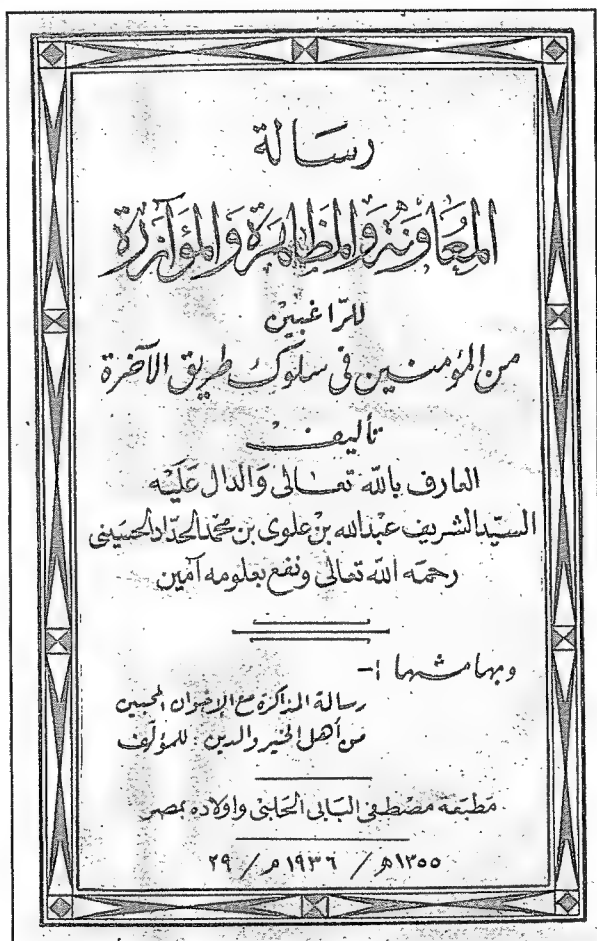 رسالة
المُعَاوَنَة وَالمُظَاهَرَة وَالمُؤَازَرَة
للرّاغبين
من المؤمنين في سلوك طريق الآخرة
تأليف
العارف بالله تعالى وَالدال عَليْه
السيّد الشريف عبْد الله بن علوى بن محمّد الحدّاد الحسَينى
رحمه الله تعالى ونفع بعلومه آمين
وبهامشها :-
رسالة المذاكرة مع الإخوان المحبين
من أهل الخير والدين . للمؤلف
مَطبَعة مصْطفى البَابى الحَلبى واولاده بمصر
١٣٥٥ھ / ١٩٣٦م / ٢٩